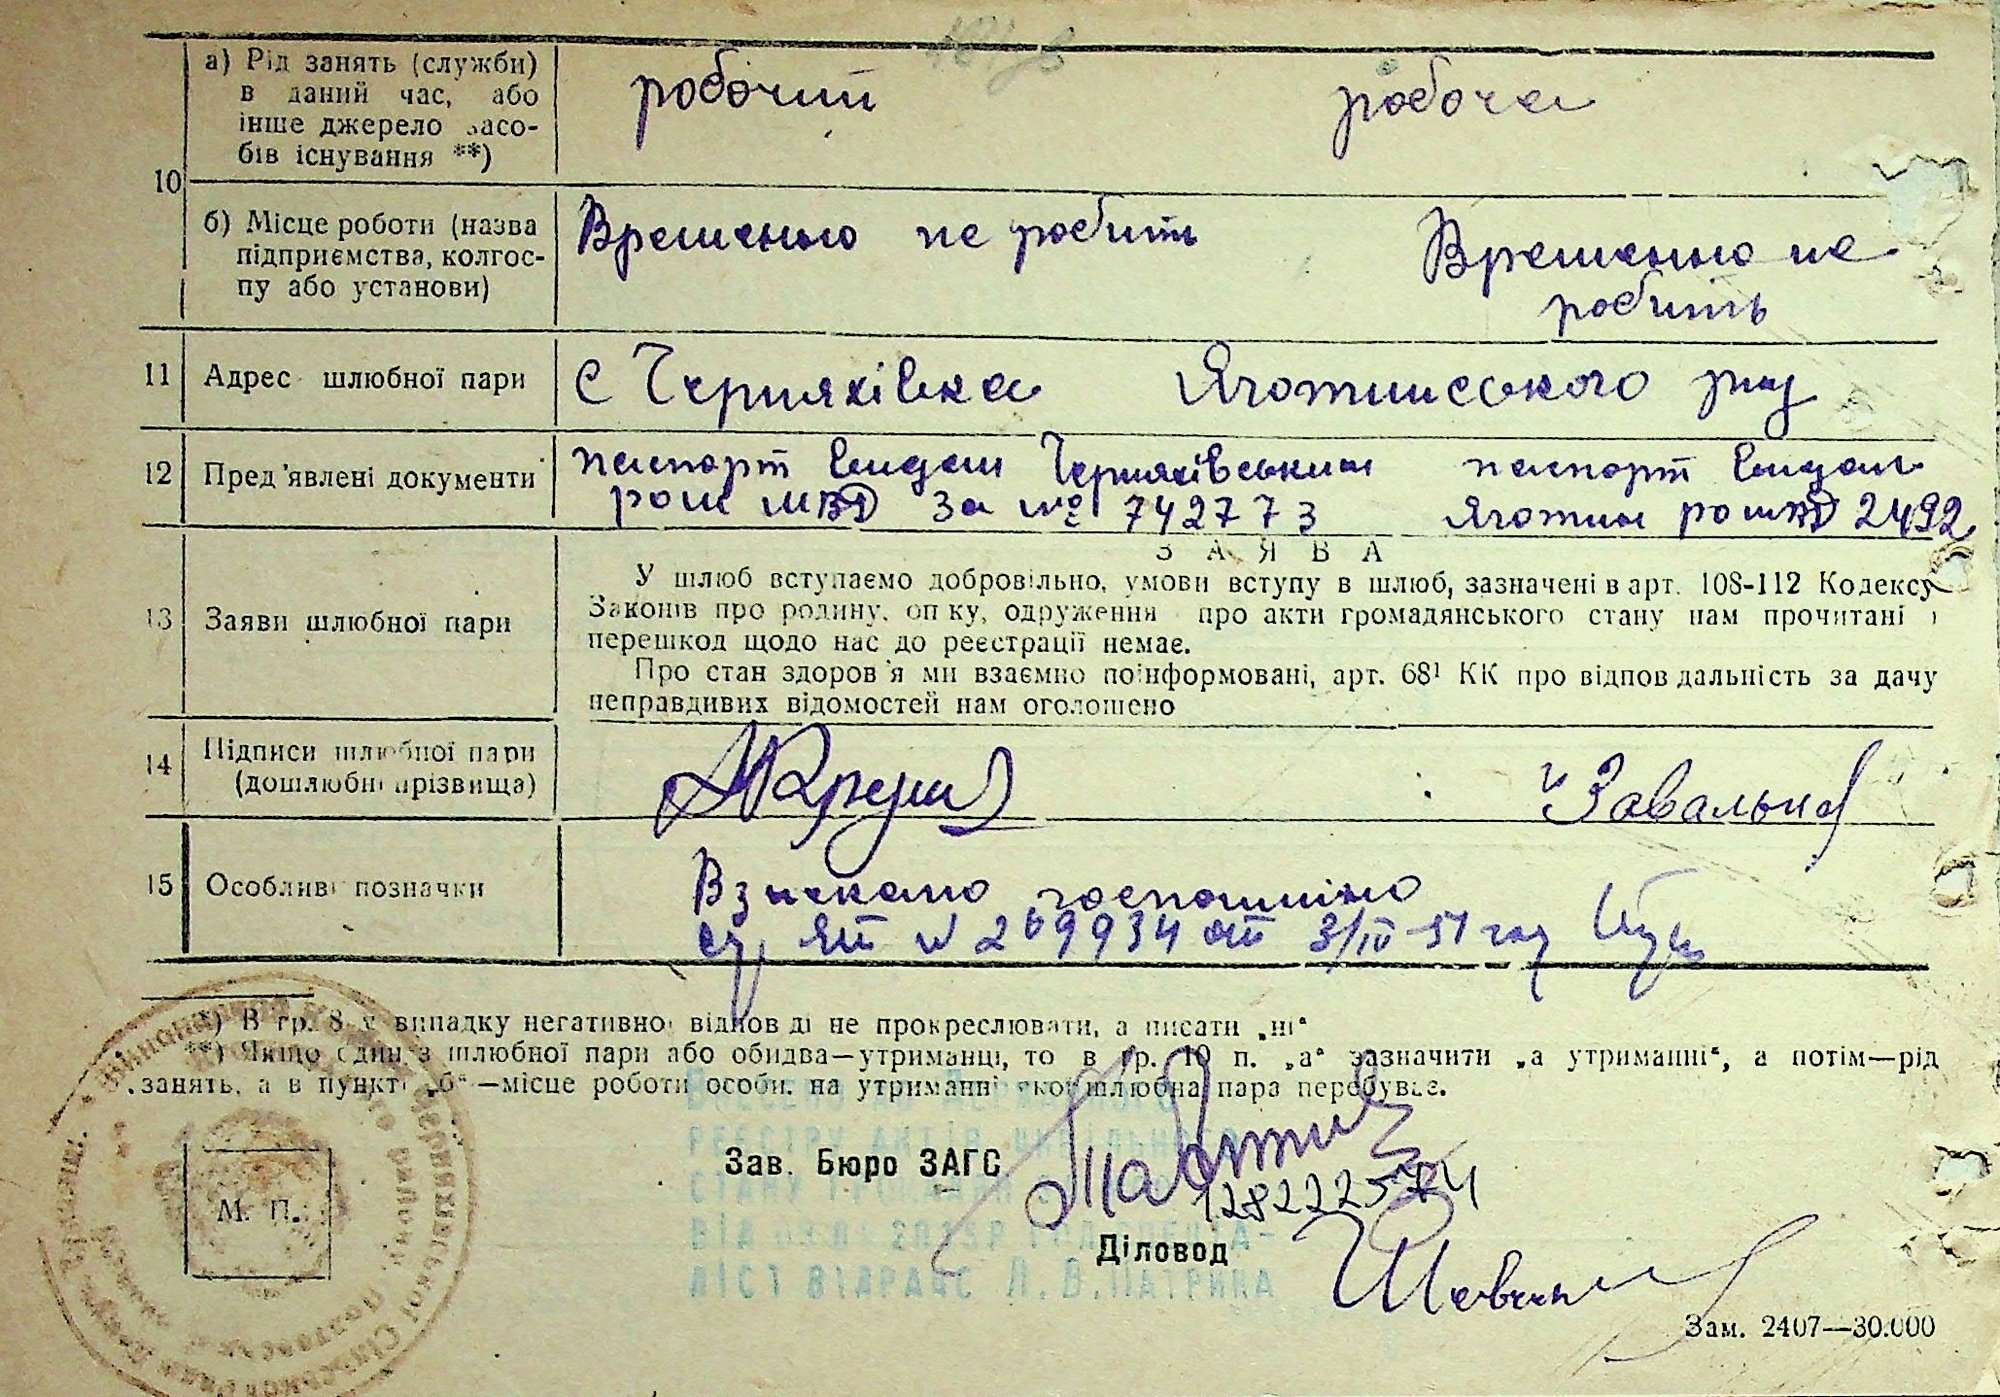 10
а) Рід занять (служби)
в даний час, або
інше джерело засо-
бів існування **)
робочий робоча
б) Місце роботи (назва
підприємства, колгос-
пу або установи)
Временно не робить Временно не
робить
11 Адрес шлюбної пари с Черняхівка Яготинського рну
12 Пред'явлені документи
паспорт видан Черняхівським паспорт видан
ром МВД За № 742773 Яготин ром МВД 2492
13 Заяви шлюбної пари
ЗАЯВА
У шлюб вступаємо добровільно, умови вступу в шлюб, зазначені в арт. 108-112 Кодексу
Законів про родину, опіку, одруження про акти громадянського стану нам прочитані і
перешкод щодо нас до реєстрації немає.
Про стан здоров'я ми взаємно поінформовані, арт. 68¹ КК про відповідальність за дачу
неправдивих відомостей нам оголошено
14 Підписи шлюбної пари
(дошлюбні прізвища)
Завальна
15 Особливі позначки
Взискано госпошліно
№ 269934 от 3/IV-51 год
*) В гр. 8 у випадку негативної відповіді не прокреслювати, а писати „ні“
**) Якщо один з шлюбної пари або обидва—утриманці, то в гр. 10 п. „а“ зазначити „а утриманні“, а потім—рід
занять, а в пункті „б“—місце роботи особи, на утриманні якої шлюбна пара перебуває.
ВНЕСЕНО ДО ДЕРЖАВНОГО
РЕЄСТРУ АКТІВ ЦИВІЛЬНОГО
СТАНУ ГРОМАДЯН
Зав. Бюро ЗАГС
М. П.
Діловод
ЛІСТ ВІДРАЦС Л.В.ПАТРИНА
Зам. 2407—30.000